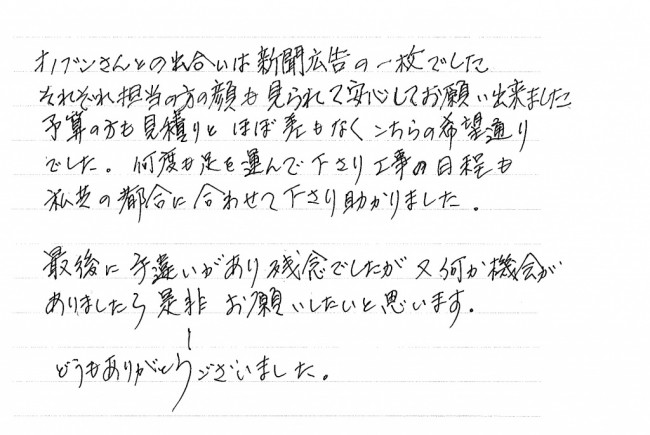 オノブンさんとの出合いは新聞広告の一枚でした
それぞれ担当の方の顔も見られて安心してお願い出来ました
予算の方も見積りとほぼ差もなくこちらの希望通り
でした。何度も足を運んで下さり工事の日程も
私共の都合に合わせて下さり助かりました。
最後に手違いがあり残念でしたが又何か機会が
ありましたら是非お願いしたいと思います。
どうもありがとうございました。